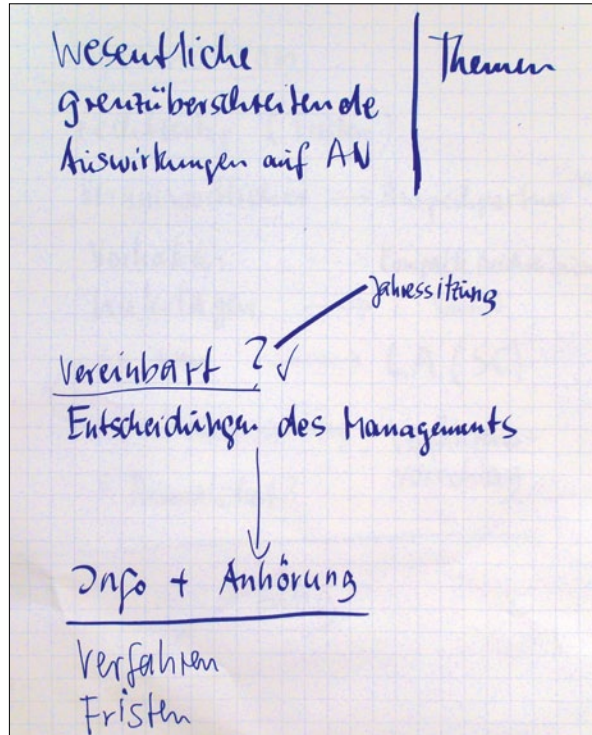 Wesentliche
grenzüberschreitende
Auswirkungen auf AN
Themen
Jahressitzung
vereinbart ? ✓
Entscheidungen des Managements
Info + Anhörung
Verfahren
Fristen